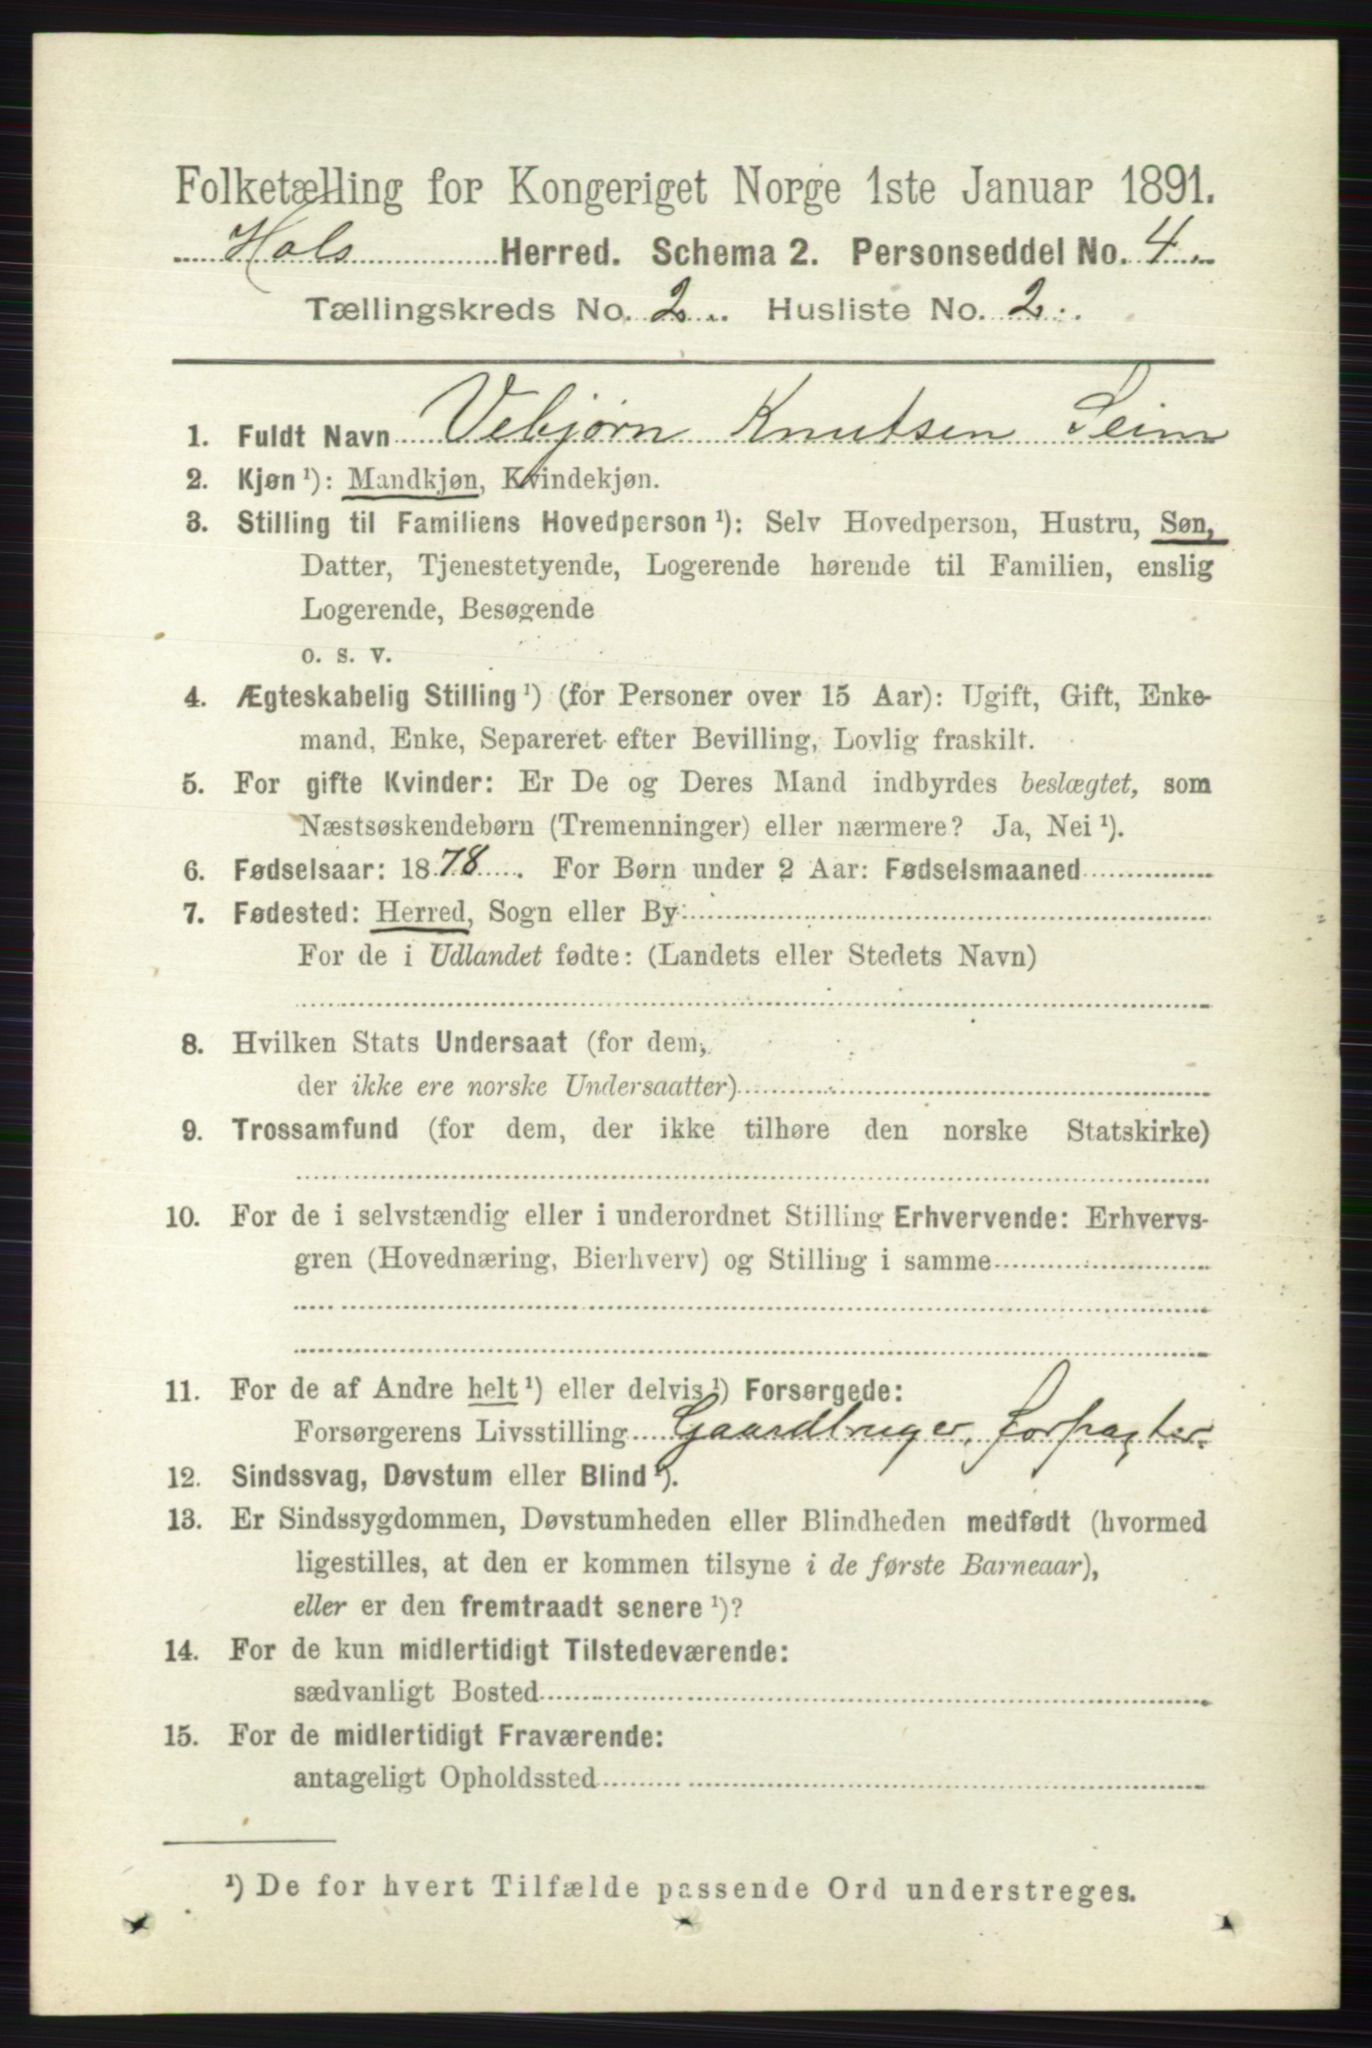 Folketælling for Kongeriget Norge 1ste Januar 1891.
Hols Herred. Schema 2. Personseddel No. 4
Tællingskreds No. 2. Husliste No. 2.
1. Fuldt Navn Vebjørn Knutsen Seim
2. Kjøn ¹): Mandkjøn, Kvindekjøn.
3. Stilling til Familiens Hovedperson ¹): Selv Hovedperson, Hustru, Søn,
Datter, Tjenestetyende, Logerende hørende til Familien, enslig
Logerende, Besøgende
o. s. v.
4. Ægteskabelig Stilling ¹) (for Personer over 15 Aar): Ugift, Gift, Enke-
mand, Enke, Separeret efter Bevilling, Lovlig fraskilt.
5. For gifte Kvinder: Er De og Deres Mand indbyrdes beslægtet, som
Næstsøskendebørn (Tremenninger) eller nærmere? Ja, Nei ¹).
6. Fødselsaar: 1878. For Børn under 2 Aar: Fødselsmaaned
7. Fødested: Herred, Sogn eller By
For de i Udlandet fødte: (Landets eller Stedets Navn)
8. Hvilken Stats Undersaat (for dem,
der ikke ere norske Undersaatter)
9. Trossamfund (for dem, der ikke tilhøre den norske Statskirke)
10. For de i selvstændig eller i underordnet Stilling Erhvervende: Erhvervs-
gren (Hovednæring, Bierhverv) og Stilling i samme
11. For de af Andre helt ¹) eller delvis ¹) Forsørgede:
Forsørgerens Livsstilling Gaardbruger, forpagter.
12. Sindssvag, Døvstum eller Blind ¹).
13. Er Sindssygdommen, Døvstumheden eller Blindheden medfødt (hvormed
ligestilles, at den er kommen tilsyne i de første Barneaar),
eller er den fremtraadt senere ¹)?
14. For de kun midlertidigt Tilstedeværende:
sædvanligt Bosted
15. For de midlertidigt Fraværende:
antageligt Opholdssted
¹) De for hvert Tilfælde passende Ord understreges.